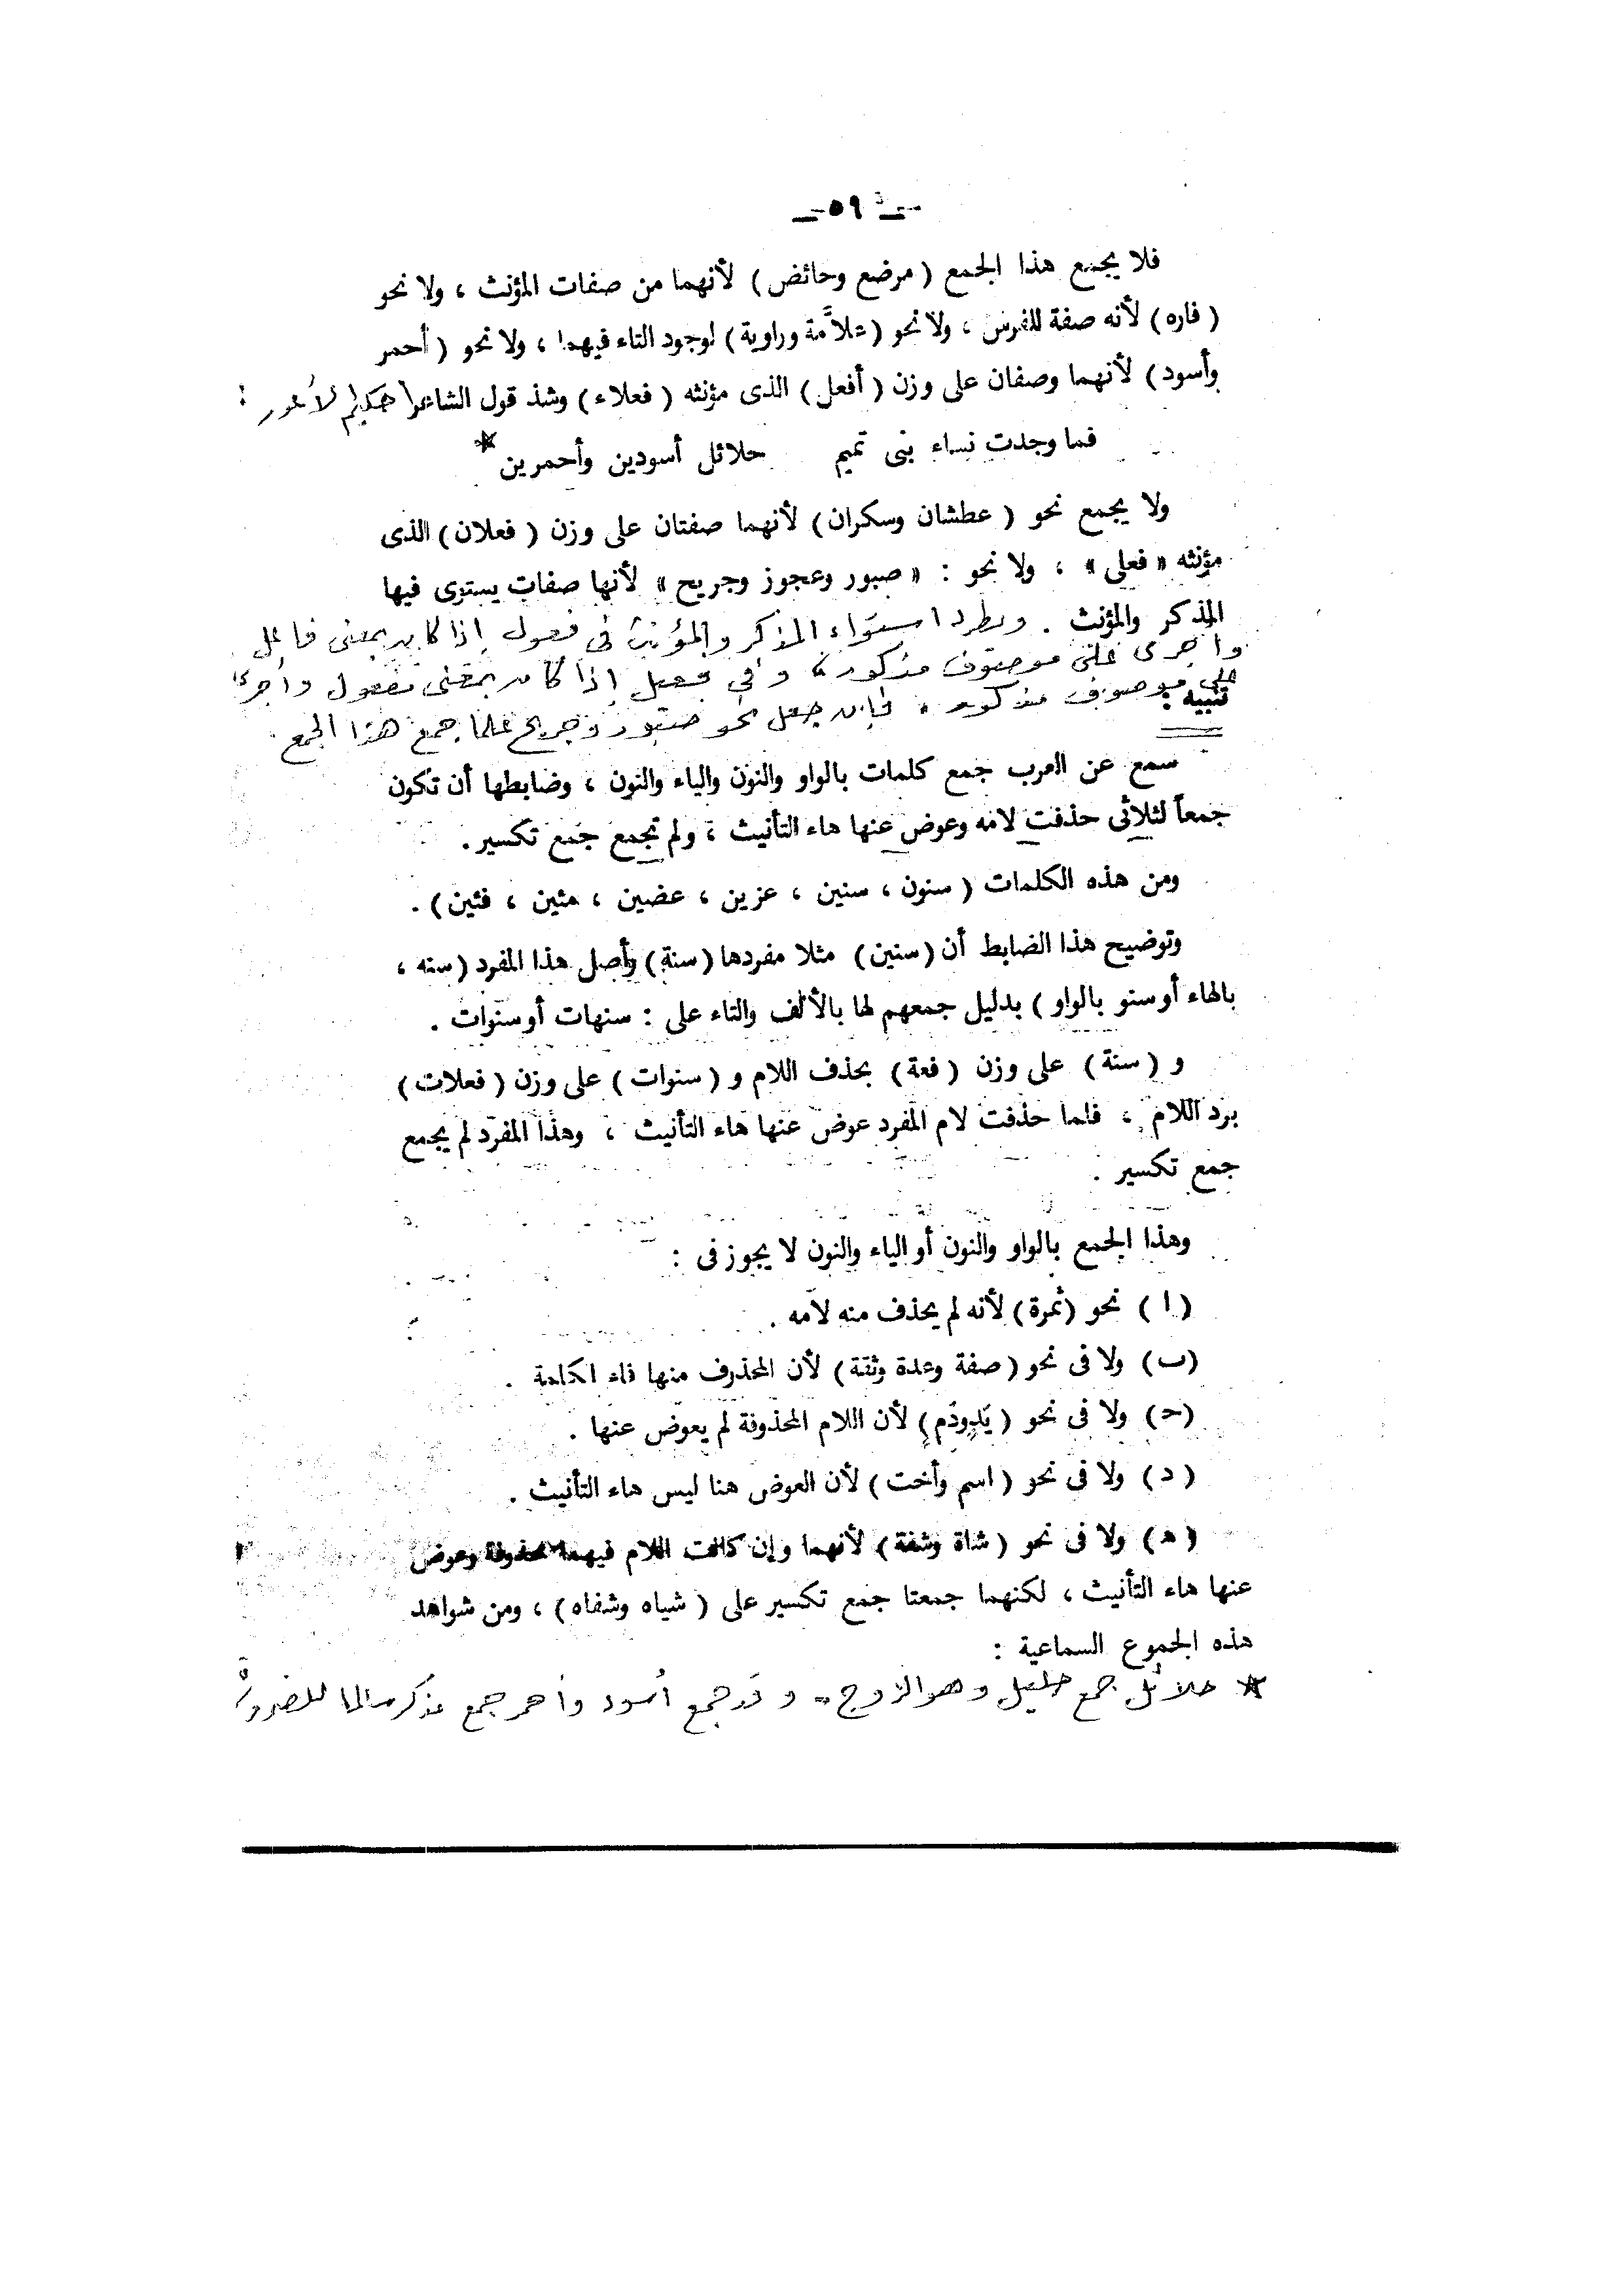 — ٥٩ —
فلا يجمع هذا الجمع ( مرضع وحائض ) لأنهما من صفات المؤنث ، ولا نحو
( فاره ) لأنه صفة للفرس ، ولا نحو ( علاَّمة وراوية ) لوجود التاء فيهما ، ولا نحو ( أحمر
وأسود ) لأنهما وصفان على وزن ( أفعل ) الذى مؤنثه ( فعلاء ) وشذ قول الشاعر حكيم الأعور :
فما وجدت نساء بنى تميم حلائل أسودين وأحمرين *
ولا يجمع نحو ( عطشان وسكران ) لأنهما صفتان على وزن ( فعلان ) الذى
مؤنثه « فعلى » ، ولا نحو : « صبور وعجوز وجريح » لأنها صفات يستوى فيها
المذكر والمؤنث . ويطرد استواء المذكر والمؤنث فى فعول إذا كان بمعنى فاعل
وأجرى على موصوف مذكور ، وفى فعيل إذا كان بمعنى مفعول وأجرى
على موصوف مذكور ، فإن جعل نحو صبور وجريح علما جمع هذا الجمع .
تنبيه :
سمع عن العرب جمع كلمات بالواو والنون والياء والنون ، وضابطها أن تكون
جمعاً لثلاثى حذفت لامه وعوض عنها هاء التأنيث ، ولم تجمع جمع تكسير .
ومن هذه الكلمات ( سنون ، سنين ، عزين ، عضين ، مئين ، فئين ) .
وتوضيح هذا الضابط أن ( سنين ) مثلا مفردها ( سنة ) وأصل هذا المفرد ( سنه ،
بالهاء أو سنو بالواو ) بدليل جمعهم لها بالألف والتاء على : سنهات أو سنوات .
و ( سنة ) على وزن ( فعة ) بحذف اللام و ( سنوات ) على وزن ( فعلات )
برد اللام ، فلما حذفت لام المفرد عوض عنها هاء التأنيث ، وهذا المفرد لم يجمع
جمع تكسير .
وهذا الجمع بالواو والنون أو الياء والنون لا يجوز فى :
( ا ) نحو ( ثمرة ) لأنه لم يحذف منه لامه .
( ب ) ولا فى نحو ( صفة وعدة وثقة ) لأن المحذوف منها فاء الكلمة .
( ح ) ولا فى نحو ( يَدٍ ودَمٍ ) لأن اللام المحذوفة لم يعوض عنها .
( د ) ولا فى نحو ( اسم وأخت ) لأن العوض هنا ليس هاء التأنيث .
( ه ) ولا فى نحو ( شاة وشفة ) لأنهما وإن كانت اللام فيهما محذوفة وعوض
عنها هاء التأنيث ، لكنهما جمعتا جمع تكسير على ( شياه وشفاه ) ، ومن شواهد
هذه الجموع السماعية :
* حلائل جمع حليل وهو الزوج ، وقد جمع أسود وأحمر جمع مذكر سالما للضرورة